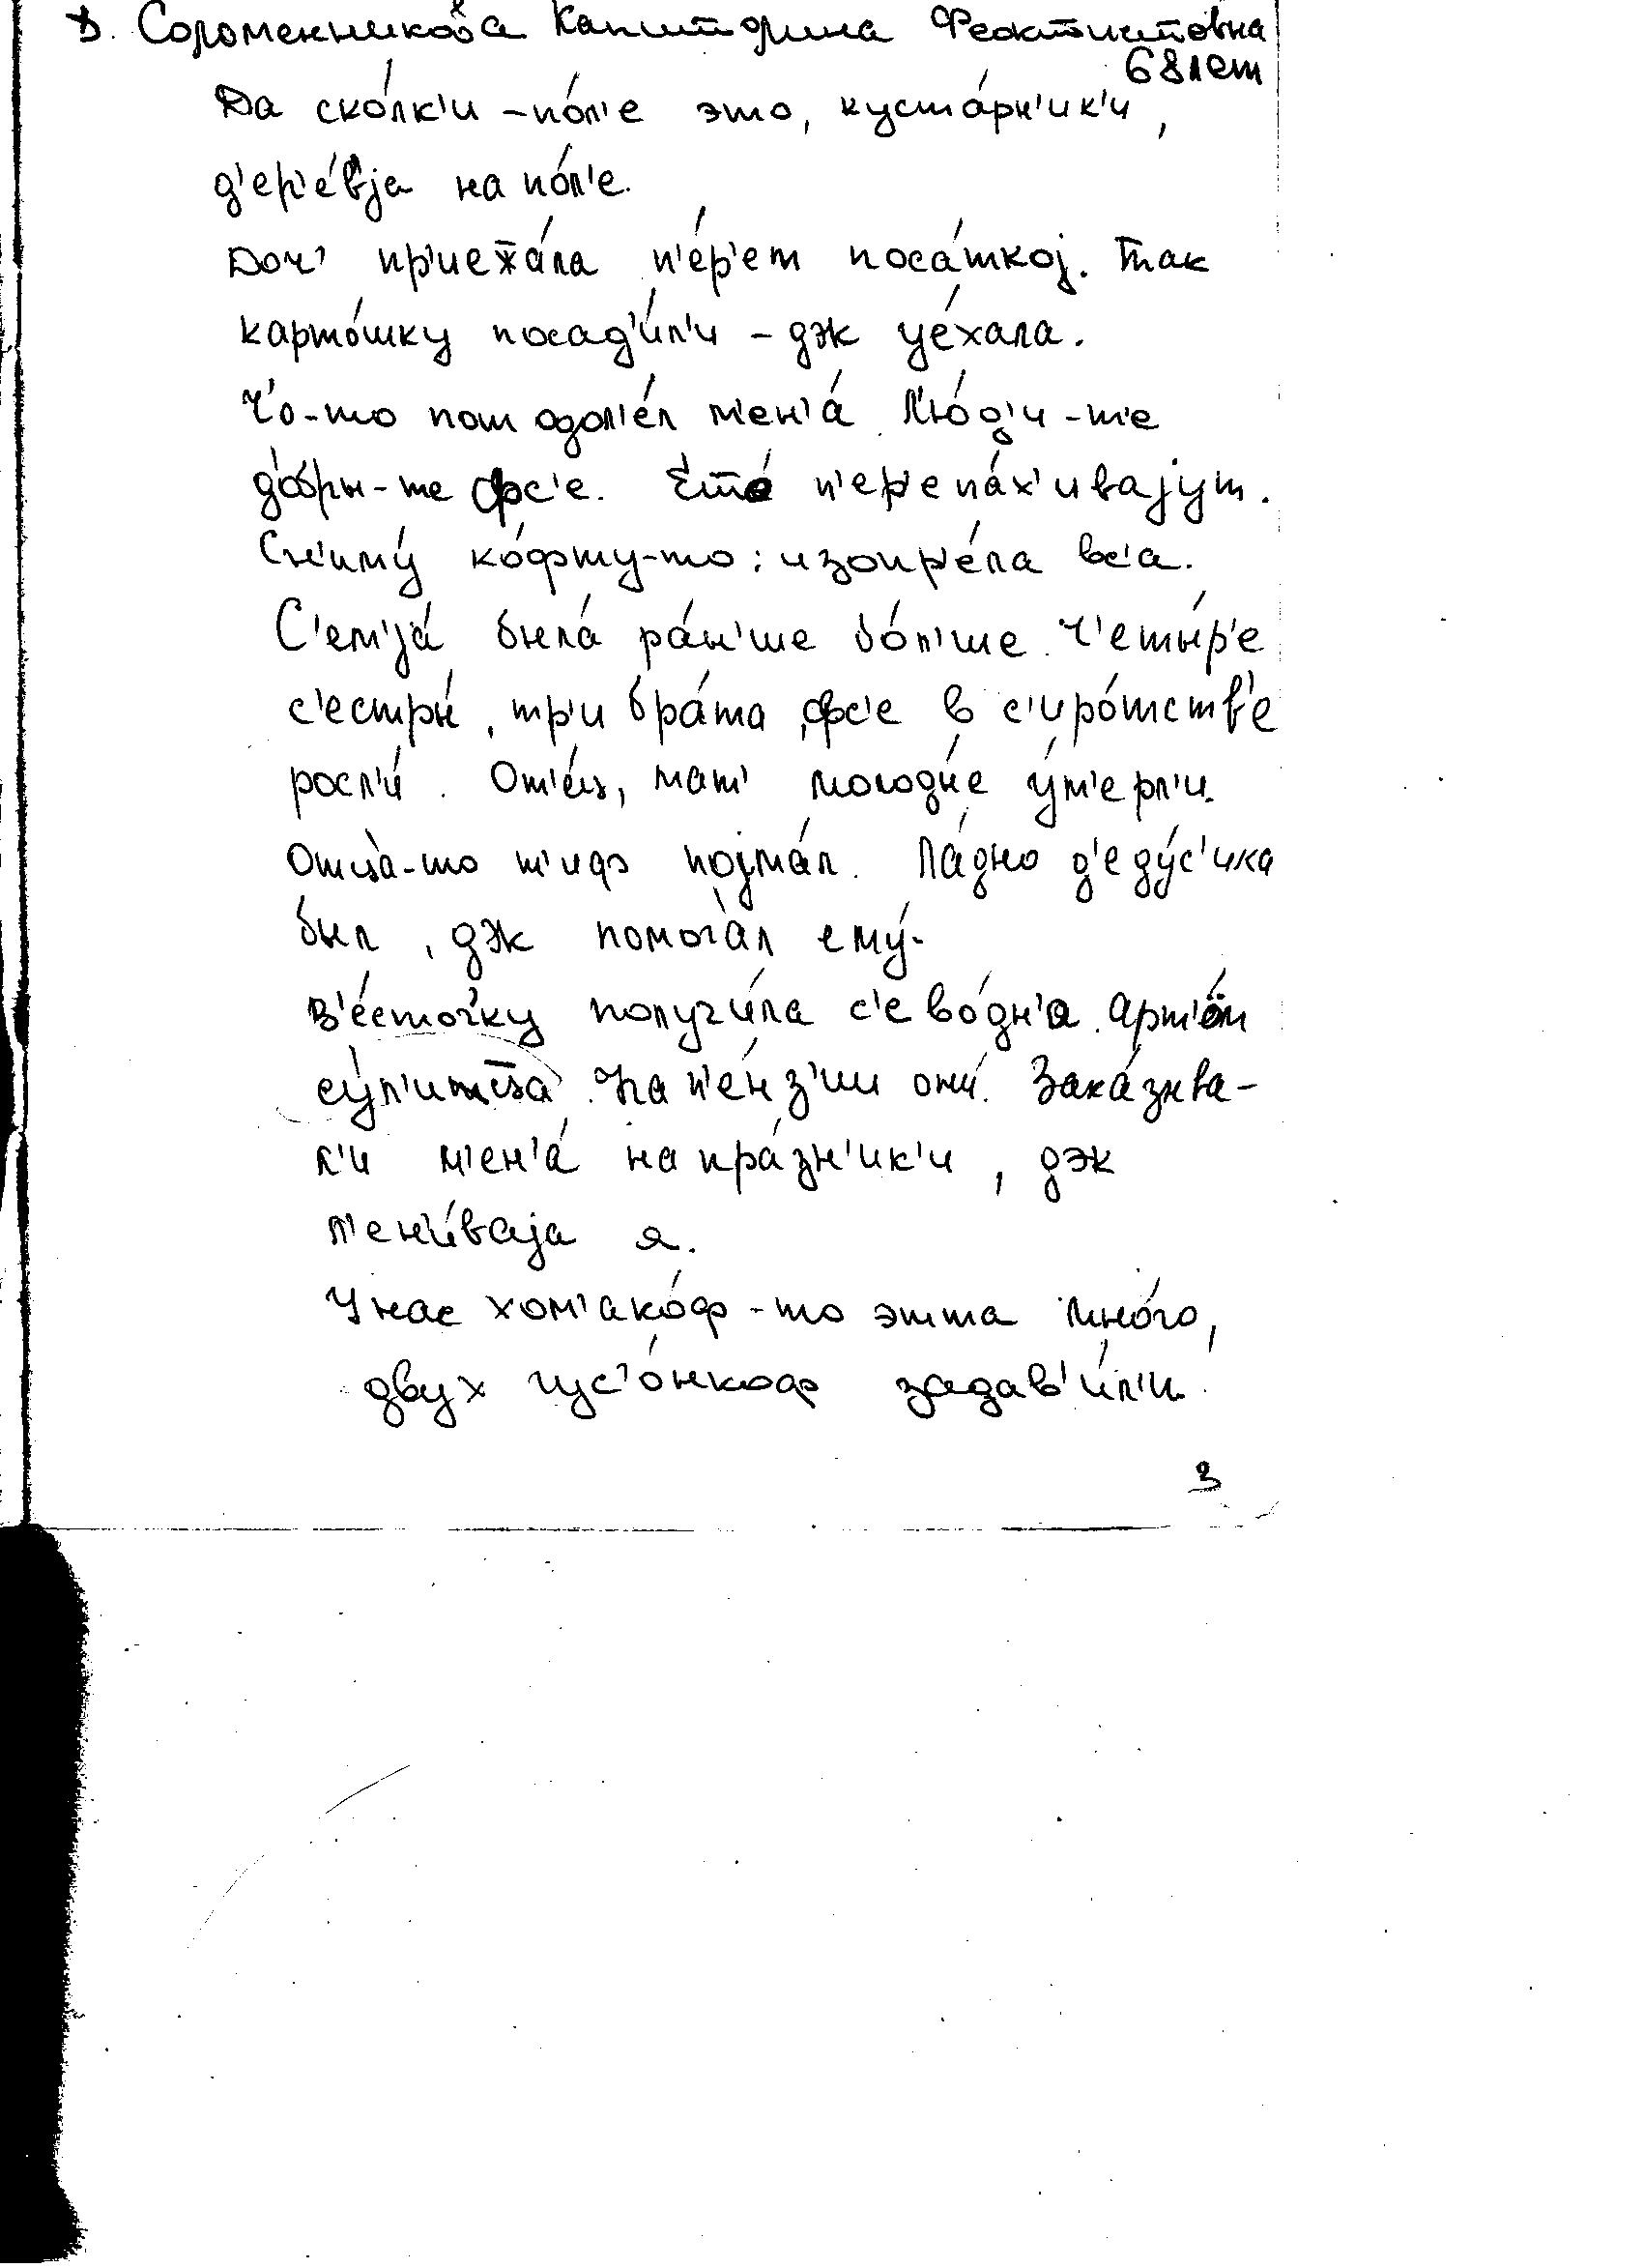 D. Соломенникова Капитолина Феоктистовна
68 лет
Да ско́лк'и – по́л'е это, куста́рн'ик'и,
д'ер'е́в'jа на по́л'е.
Доч' пр'иежа́ла п'е́р'ет поса́ткоj. Так
карто́шку посад'и́л'и – дэк уе́хала.
Ч'о́-то пот одол'е́л м'ен'а́. Л'у́д'и-т'е
до́бры-те фс'е. Е́то п'ер'епа́х'иваjут.
Сн'иму́ ко́фту-то: изопр'е́ла вс'а.
С'ем'jа́ была́ ра́н'ше бо́л'ше. Ч'еты́р'е
с'естры́, тр'и бра́та, фс'е в с'иро́тств'е
росл'и́. От'е́ц, мат' молоды́е у́м'ерл'и.
Отца́-то т'иф поjма́л. Ла́дно д'еду́с'ика
был, дэк помога́л ему́.
В'е́сточ'ку получ'и́ла с'ево́дн'а. Арт'о́м
су́л'итца. На п'е́нз'ии они́. Зака́зыва-
л'и м'ен'а́ на пра́зн'ик'и, дэк
л'ен'и́ваjа я.
У нас хом'ако́ф-то этта мно́го,
двух гус'о́нкоф задав'и́л'и.
3